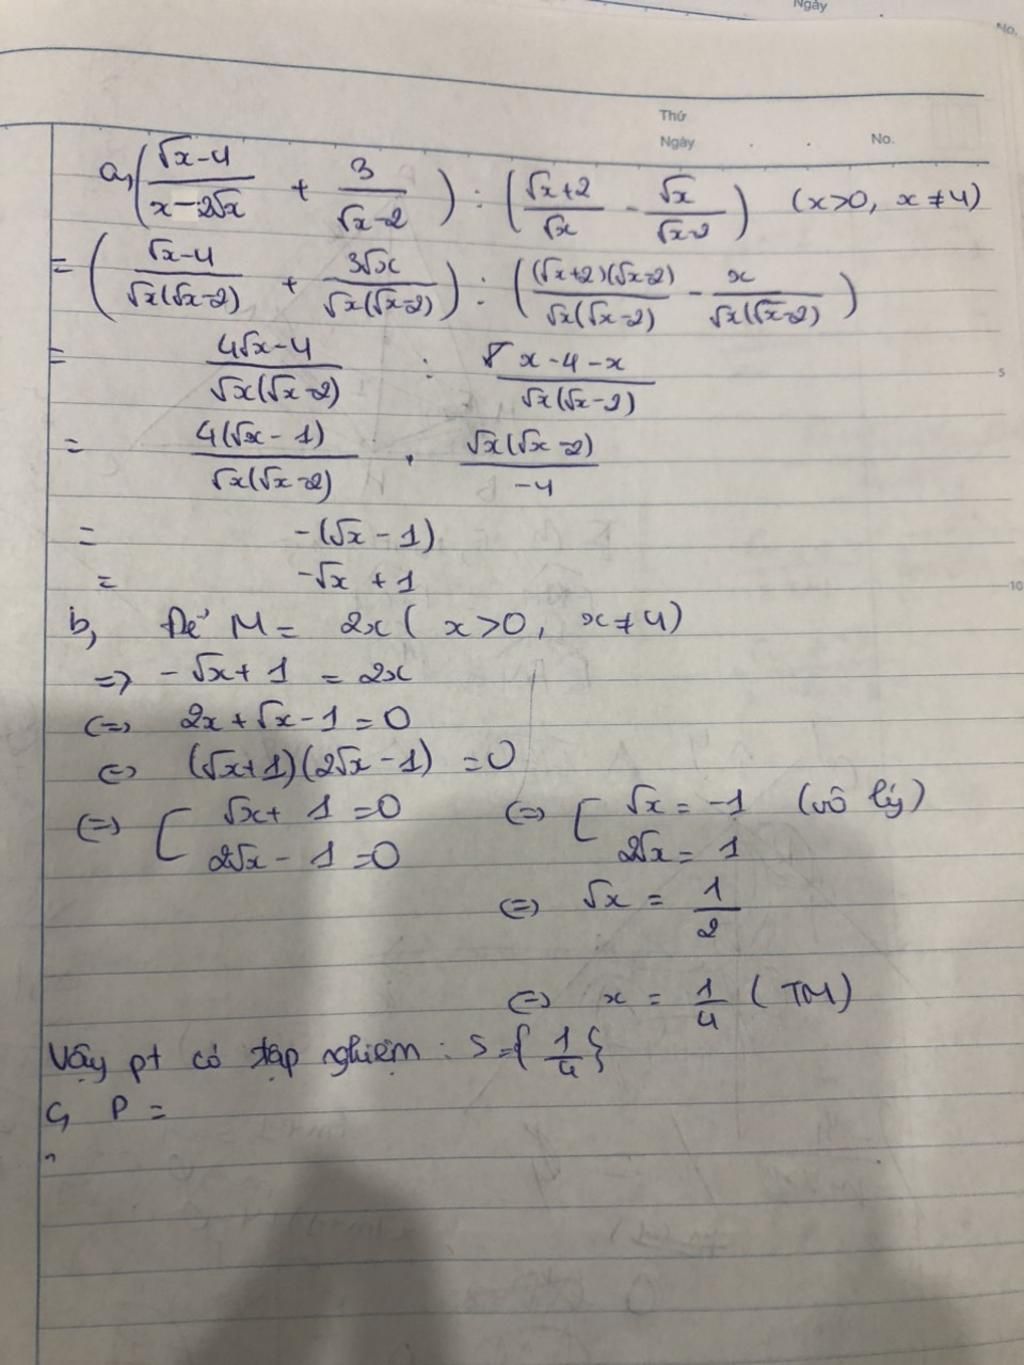 Ngày
No.
Thứ
Ngày . . No.
a, ( (√x-4)/(x-2√x) + 3/(√x-2) ) : ( (√x+2)/√x - √x/(√x-2) ) (x>0, x≠4)
= ( (√x-4)/(√x(√x-2)) + 3√x/(√x(√x-2)) ) : ( ((√x+2)(√x-2))/(√x(√x-2)) - x/(√x(√x-2)) )
= (4√x-4)/(√x(√x-2)) : (x-4-x)/(√x(√x-2))
5
= 4(√x-1)/(√x(√x-2)) . √x(√x-2)/-4
= -(√x-1)
= -√x+1
10
b, Để M = 2x ( x>0, x≠4)
=> -√x+1 = 2x
<=> 2x+√x-1=0
<=> (√x+1)(2√x-1) =0
<=> [ √x+1=0 <=> [ √x = -1 (vô lý)
2√x-1=0 2√x = 1
<=> √x = 1/2
<=> x = 1/4 (TM)
Vậy pt có tập nghiệm : S={1/4}
c, P =